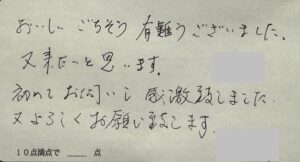 おいしいごちそう有難うございました。
又来たいと思います。
初めてお伺いし感激致しました.
又よろしくお願い致します.
10点満点で 点